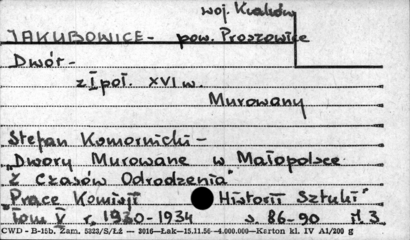 woj. Kraków
JAKUBOWICE - pow. Proszowice
Dwór -
z I poł. XVI w.
Murowany
Stefan Komornicki -
"Dwory Murowane w Małopolsce
z Czasów Odrodzenia"
"Prace Komisji Historii Sztuki"
Tom V r. 1930-1934 s. 86-90 il. 3
CWD - B-15b. Zam. 5223/S/Łż — 3016—Łask—15.11.56—4.000.000—Karton kl. IV A1/200 g